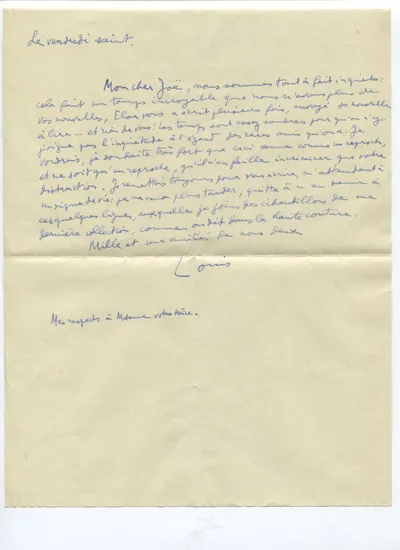 Le vendredi saint.
Mon cher Joë, nous sommes tout à fait inquiets:
cela fait un temps incroyable que nous n'avons plus de
vos nouvelles, Elsa vous a écrit plusieurs fois, envoyé sa nouvelle
à lire... et rien de vous! Les temps sont assez sombres pour qu'on n'y
joigne pas l'inquiétude à l'égard des rares amis qu'on a. Je
voudrais, je souhaite très fort que ceci sonne comme un reproche,
et ne soit qu'un reproche, qu'il n'en faille incriminer que votre
distraction. Je remettais toujours pour vous écrire, m'attendant à
un signe de vie: je ne veux plus tarder, quitte à m'en tenir à
ces quelques lignes, auxquelles je joins des échantillons de ma
dernière collection, comme on dit dans la haute couture.
Mille et une amitiés de nous deux
Louis
Mes respects à Madame votre mère.